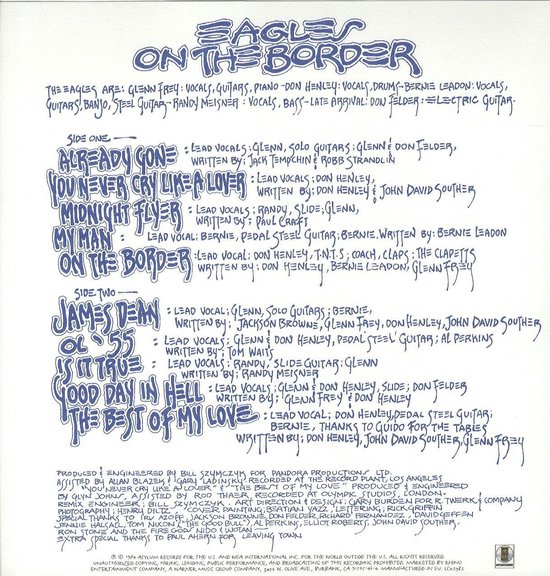 EAGLES
ON THE BORDER
THE EAGLES ARE: GLENN FREY: VOCALS, GUITARS, PIANO - DON HENLEY: VOCALS, DRUMS - BERNIE LEADON: VOCALS,
GUITARS, BANJO, STEEL GUITAR - RANDY MEISNER: VOCALS, BASS - LATE ARRIVAL: DON FELDER: ELECTRIC GUITAR.
SIDE ONE —
ALREADY GONE : LEAD VOCALS: GLENN, SOLO GUITARS: GLENN & DON FELDER,
WRITTEN BY: JACK TEMPCHIN & ROBB STRANDLIN
YOU NEVER CRY LIKE A LOVER : LEAD VOCALS: DON HENLEY,
WRITTEN BY: DON HENLEY & JOHN DAVID SOUTHER
MIDNIGHT FLYER : LEAD VOCALS: RANDY, SLIDE; GLENN,
WRITTEN BY: PAUL CRAFT
MY MAN : LEAD VOCAL: BERNIE, PEDAL STEEL GUITAR: BERNIE. WRITTEN BY: BERNIE LEADON
ON THE BORDER : LEAD VOCAL: DON HENLEY, T.N.T.S: COACH, CLAPS: THE CLAPETTS
WRITTEN BY: DON HENLEY, BERNIE LEADON, GLENN FREY
SIDE TWO —
JAMES DEAN : LEAD VOCAL; GLENN, SOLO GUITARS; BERNIE,
WRITTEN BY: JACKSON BROWNE, GLENN FREY, DON HENLEY, JOHN DAVID SOUTHER
OL' '55 : LEAD VOCALS; GLENN & DON HENLEY, PEDAL STEEL GUITAR: AL PERKINS
WRITTEN BY: TOM WAITS
IS IT TRUE : LEAD VOCALS: RANDY, SLIDE GUITAR: GLENN
WRITTEN BY: RANDY MEISNER
GOOD DAY IN HELL : LEAD VOCALS; GLENN & DON HENLEY, SLIDE; DON FELDER
WRITTEN BY: GLENN FREY & DON HENLEY
THE BEST OF MY LOVE : LEAD VOCAL: DON HENLEY, PEDAL STEEL GUITAR;
BERNIE, THANKS TO GUIDO FOR THE TABLES
WRITTEN BY: DON HENLEY, JOHN DAVID SOUTHER, GLENN FREY
PRODUCED & ENGINEERED BY BILL SZYMCZYK FOR PANDORA PRODUCTIONS LTD.
ASSISTED BY ALLAN BLAZEK & GARY LADINSKY. RECORDED AT THE RECORD PLANT, LOS ANGELES
"YOU NEVER CRY LIKE A LOVER" & "THE BEST OF MY LOVE" PRODUCED & ENGINEERED
BY GLYN JOHNS, ASSISTED BY ROD THAER, RECORDED AT OLYMPIC STUDIOS, LONDON.
REMIX ENGINEER: BILL SZYMCZYK. ART DIRECTION & DESIGN: GARY BURDEN FOR R. TWERK & COMPANY
PHOTOGRAPHY: HENRY DILTZ COVER PAINTING; BEATIAN YAZZ, LETTERING; RICK GRIFFIN
SPECIAL THANKS TO IRV AZOFF, JACKSON BROWNE, DON FELDER, RICHARD FERNANDEZ, DAVID GEFFEN
JENNIE HALSALL, TOM NIXON ("THE GOOD BULL"), AL PERKINS, ELLIOT ROBERTS, JOHN DAVID SOUTHER,
RON STONE AND THE FIRE GODS NIDO & WUTAN.
EXTRA SPECIAL THANKS TO PAUL AHERN FOR LEAVING TOWN
℗ © 1974 ASYLUM RECORDS FOR THE U.S. AND WEA INTERNATIONAL INC. FOR THE WORLD OUTSIDE THE U.S. ALL RIGHTS RESERVED.
UNAUTHORIZED COPYING, HIRING, LENDING, PUBLIC PERFORMANCE, AND BROADCASTING OF THIS RECORDING PROHIBITED. MARKETED BY RHINO
ENTERTAINMENT COMPANY, A WARNER MUSIC GROUP COMPANY, 3400 W. OLIVE AVE., BURBANK, CA 91505